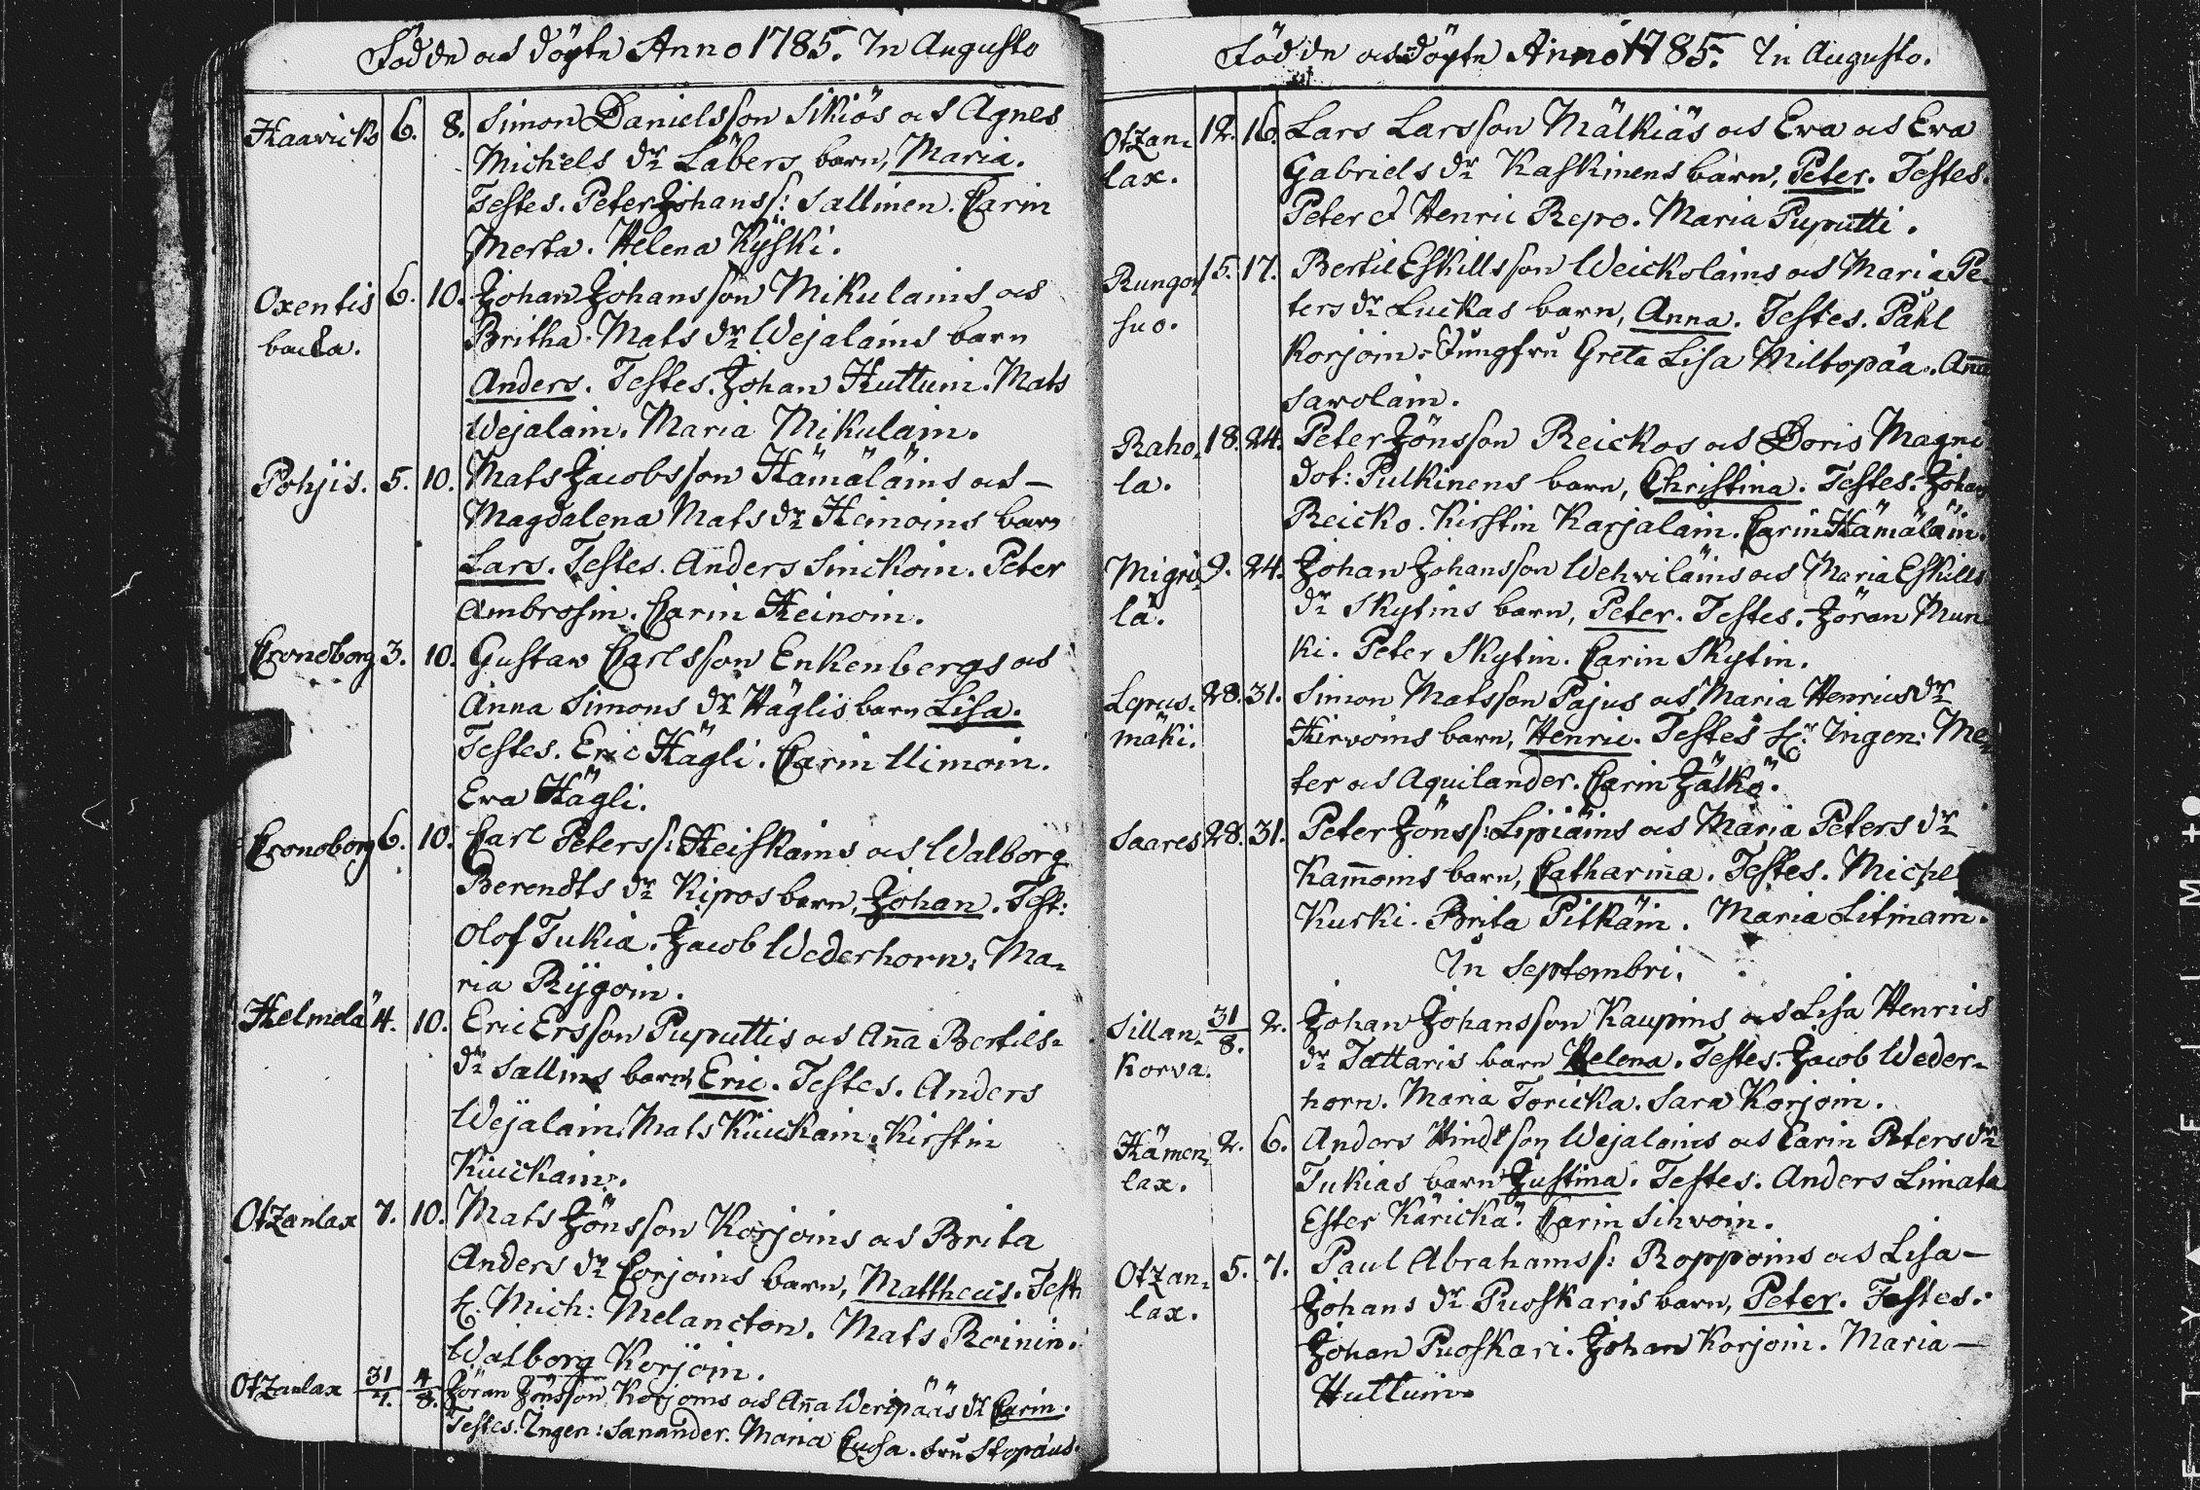 Födde och döpte Anno 1785. In Augusto
Kaavicks 6. 8. Simon Danielsson Sikiös och Agnes
Michels dr Läbers barn, Maria.
Testes. Peter Johanss: Sallinen. Carin
Merta. Helena Kyski.
Oxentis 6. 10. Johan Johansson Mikulains och
backa. Britha Mats dr Wejalains barn
Anders. Testes. Johan Huttuin. Mats
Wejalain. Maria Mikulain.
Pohjis. 5. 10. Mats Jacobsson Hämäläins och –
Magdalena Mats dr Heinoins barn
Lars. Testes. Anders Sinckoin. Peter
Ambrosin. Carin Heinoin.
Cronoborg 3. 10. Gustav Carlsson Enkenbergs och
Anna Simons dr Häglis barn Lisa.
Testes. Eric Hägli. Carin Uimoin.
Eva Hägli.
Cronoborg 6. 10. Carl Peterss: Heiskains och Walborg
Berendts dr Kipos barn, Johan. Test:
Olof Tukia. Jacob Wederhorn. Ma-
ria Rygoin.
Helmelä 4. 10. Eric Ersson Puputtis och Anna Bertils-
dr Sallins barn, Eric. Testes. Anders
Wejalain. Mats Kiuckain. Kirstin
Kiuckain.
Otzanlax 7. 10. Mats Jönsson Korjoins och Brita
Anders dr Corjoins barn, Mattheus. Test:
H: Mich: Melancton. Mats Roinin.
Walborg Korjoin.
Otzanlax 31/7. 4/8. Jöran Jönsson Korjoins och Anna Weripääs dr Carin.
Testes. Ingen: Sanander. Maria Cuosa. fru Stopäus.
Födde och döpte Anno 1785. In Augusto.
Otzan- 12. 16. Lars Larsson Mälkiäs och Eva och Eva
lax. Gabriels dr Kaskinens barn, Peter. Testes.
Peter et Henric Repo. Maria Puputti.
Rungon 15. 17. Bertil Eskillsson Weickolains och Maria Pe-
suo. ters dr Luckas barn, Anna. Testes. Påhl
Korjoin. Jungfru Greta Lisa Miltopäa. Anna
Savolain.
Raho- 18. 24. Peter Jönsson Reickos och Doris Magni
la. dot: Pulkinens barn, Christina. Testes. Johan
Reicko. Kirstin Karjalain. Carin Hämäläin.
Migri- 9. 24. Johan Johansson Wehviläins och Maria Eskills
lä. dr Skytins barn, Peter. Testes. Jöran Mun-
ki. Peter Skytin. Carin Skytin.
Lepus- 28. 31. Simon Matsson Pajus och Maria Henrics dr
mäki. Hirvoins barn, Henric. Testes Hr Ingen: Me-
ter och Aquilander. Carin Jälkö.
Saares 28. 31. Peter Jönss: Lipiäins och Maria Peters dr
Kammoins barn, Catharina. Testes. Michel
Kurki. Brita Pitkäin. Maria Litmain.
In Septembri.
Sillan- 31/8. 2. Johan Johansson Kaupins och Lisa Henrics
Korva. dr Tattaris barn Helena. Testes. Jacob Weder-
horn. Maria Toricka. Sara Korjoin.
Hämen- 2. 6. Anders Hindrsson Wejalains och Carin Peters dr
lax. Tukias barn Justina. Testes. Anders Limata
Ester Käricka. Carin Sihvoin.
Otzan- 5. 7. Paul Abrahamss: Roppoins och Lisa –
lax. Johans dr Puoskaris barn, Peter. Testes.
Johan Puoskari. Johan Korjoin. Maria –
Huttuin.